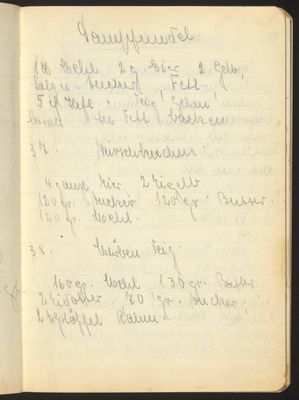 Dampfnudel.
1 ℔ Mehl 2 g Eier 2 Gelb,
Salz u. Zucker, Fett
5 g Hefe
in Fett backen
37. Kirschkuchen.
4 ganze Eier 2 Eigelb
120 gr. Zucker 120 gr. Butter.
120 gr. Mehl.
38. Mürben Teig.
160 gr. Mehl 130 gr. Butter
2 Eidotter 70 gr. Zucker
2 Eßlöffel Rahm